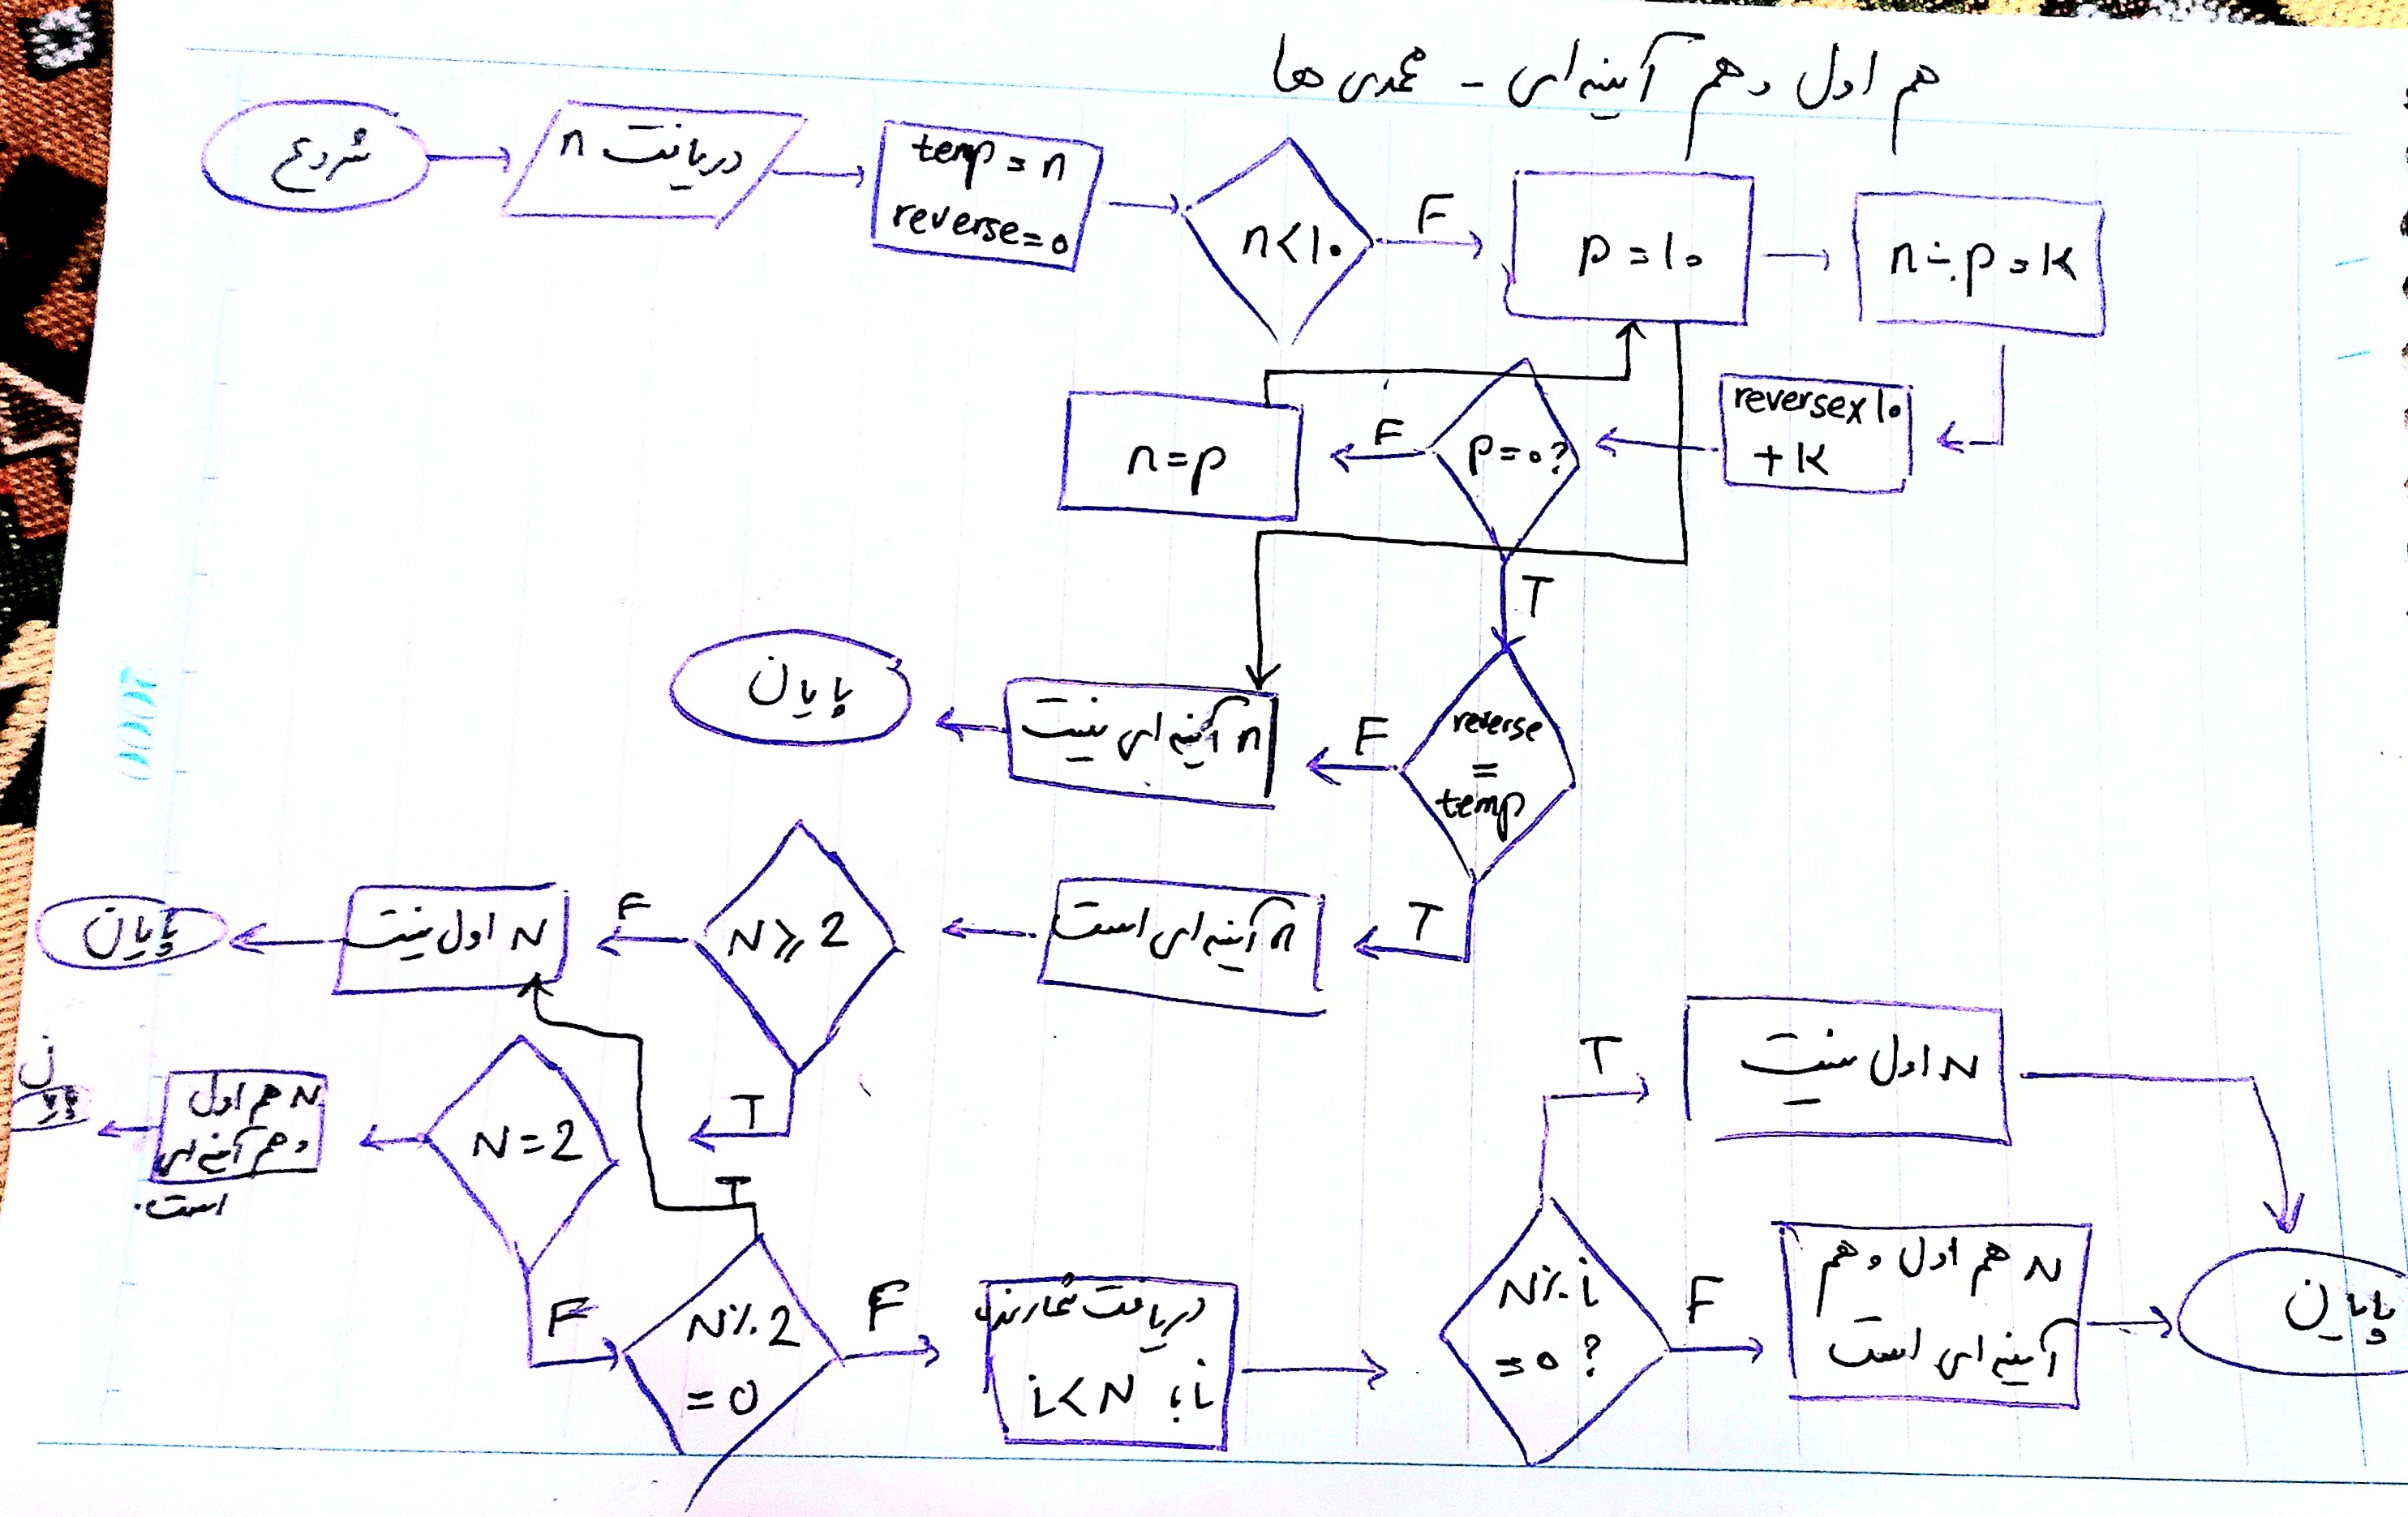 هم اول و هم آینه‌ای - محمدی ها
شروع
دریافت n
temp = n
reverse = ۰
n < ۱۰
F
p = ۱۰
n ÷ p = K
reverse x ۱۰
+ K
p = ۰ ?
F
n = p
T
reverse
=
temp
F
n آینه ای نیست
پایان
T
n آینه ای است
N ⩾ 2
F
N اول نیست
پایان
T
N = 2
N هم اول
و هم آینه ای
است.
F
N٪ 2
= 0
T
F
دریافت شمارنده
i ؛ i < N
N٪ i
= ۰ ?
T
N اول نیست
F
N هم اول و هم
آینه ای است
پایان